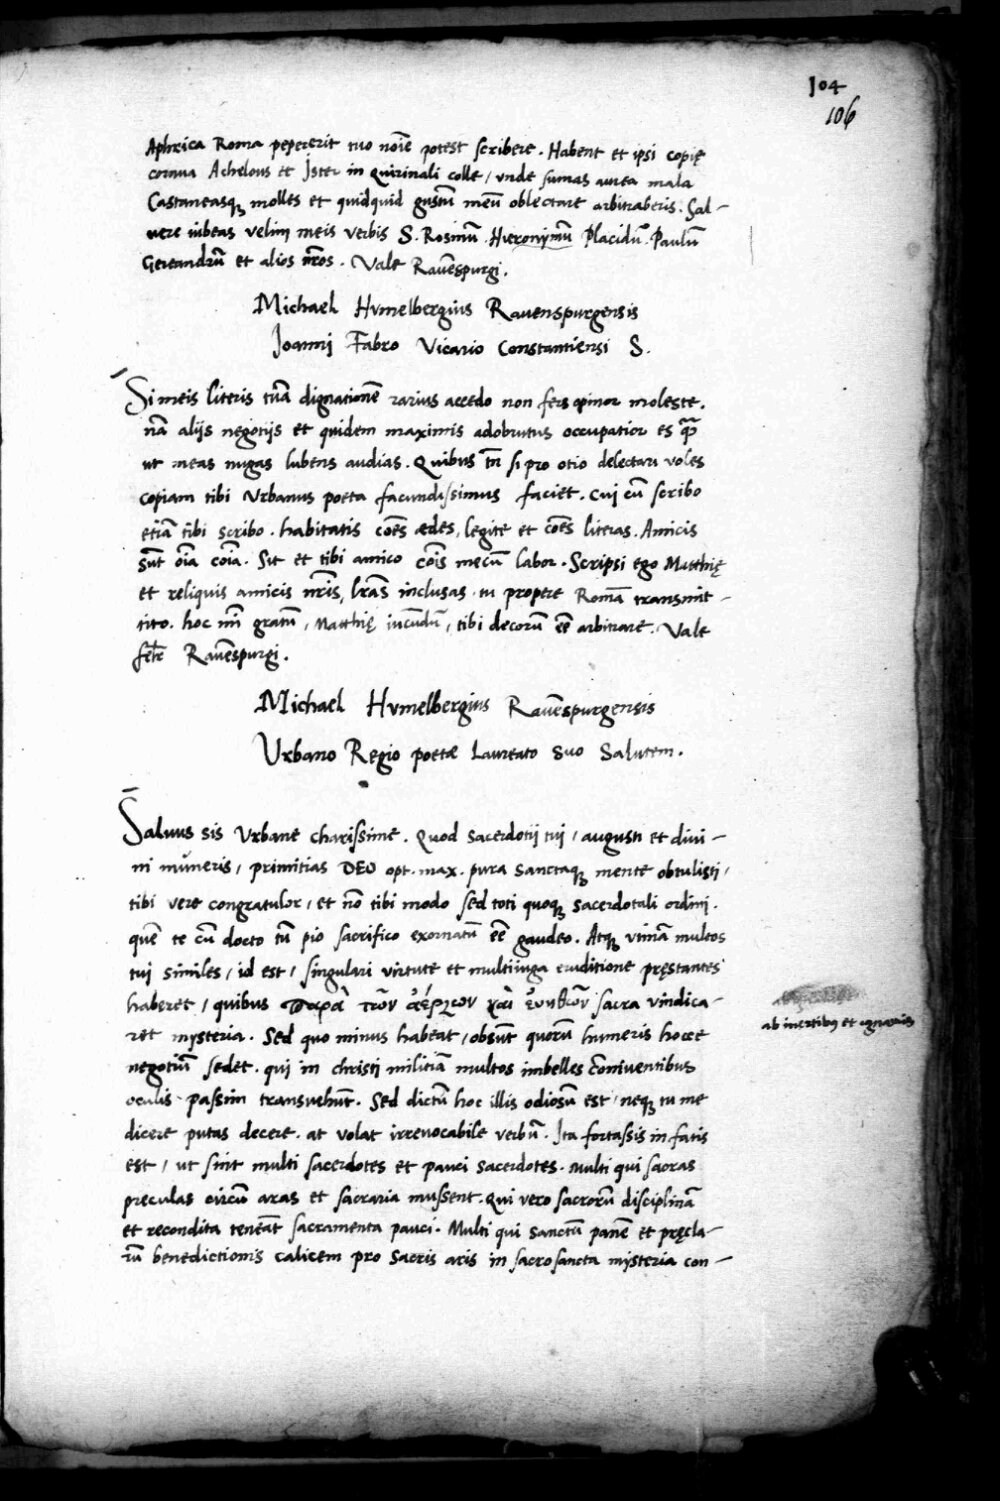 104
106
Aphrica Roma pepererit tuo noīe potest scribere. Habent et ipsi copię
cornua Achelous et Ister in quirinali colle, vnde sumas aurea mala
Castaneasqꝫ molles et quidquid gustū meū oblectare arbitraberis. Sal-
uere iubeas velim meis verbis S. Rosinū. Hieronymū Placidū. Paulū
Gereandrū et alios nr̄os. Vale Rauēspurgi.
Michael Hvmelbergius Rauenspurgensis
Joanni Fabro Vicario Constantiensi S.
Si meis literis tuā dignationē rarius accedo non fers opinor moleste.
nā alijs negotijs et quidem maximis adobrutus occupatior es q̄ꝫ
ut meas nugas lubens audias. Quibus tn̄ si pro otio delectari voles
copiam tibi Vrbanus poeta facundissimus faciet. Cuj cū scribo
etiā tibi scribo. habitatis cōes ædes, legite et cōes literas. Amicis
sūt oīa coīa. Sit et tibi amico cōis mecū labor. Scripsi ego Matthię
et reliquis amicis nr̄is, lr̄as inclusas tu propere Romā transmit-
tito. hoc mī gratū, Matthię iucūdū, tibi decorū eē arbitrare. Vale
Rauēspurgi.
Michael Hvmelbergius Rauēspurgensis
Vrbano Regio poetæ Laureato suo Salutem.
Saluus sis Vrbane charissime. Quod sacerdotij tui, augusti et diui-
ni muneris, primitias DEO opt. max. pura sanctaqꝫ mente obtulisti,
tibi vere congratulor, et nō tibi modo sed toti quoqꝫ sacerdotali ordinj.
quē te cū docto tū pio sacrifico exornatū eē gaudeo. Atqꝫ vtinā multos
tui similes, id est, singulari virtute et multiiuga eruditione pręstantes
haberet, quibus παρὰ τῶν ἀέργων καὶ sacra vindica-
ret mysteria. Sed quo minus habeat, obsūt quorū humeris hocce
negotiū sedet. qui in christi militiā multos imbelles cōniuentibus
oculis passim transuehūt. Sed dictū hoc illis odiosū est, neqꝫ tu me
dicere putas decere. at volat irreuocabile verbū. Ita fortassis in fatis
est, ut sint multi sacerdotes et pauci sacerdotes. Multi qui sacras
preculas circū aras et sacraria mussent. Qui vero sacrorū disciplinā
et recondita teneāt sacramenta pauci. Multi qui sanctū panē et pręcla-
rū benedictionis calicem pro sacris aris in sacrosancta mysteria con-
ab inertibꝰ et ignauis